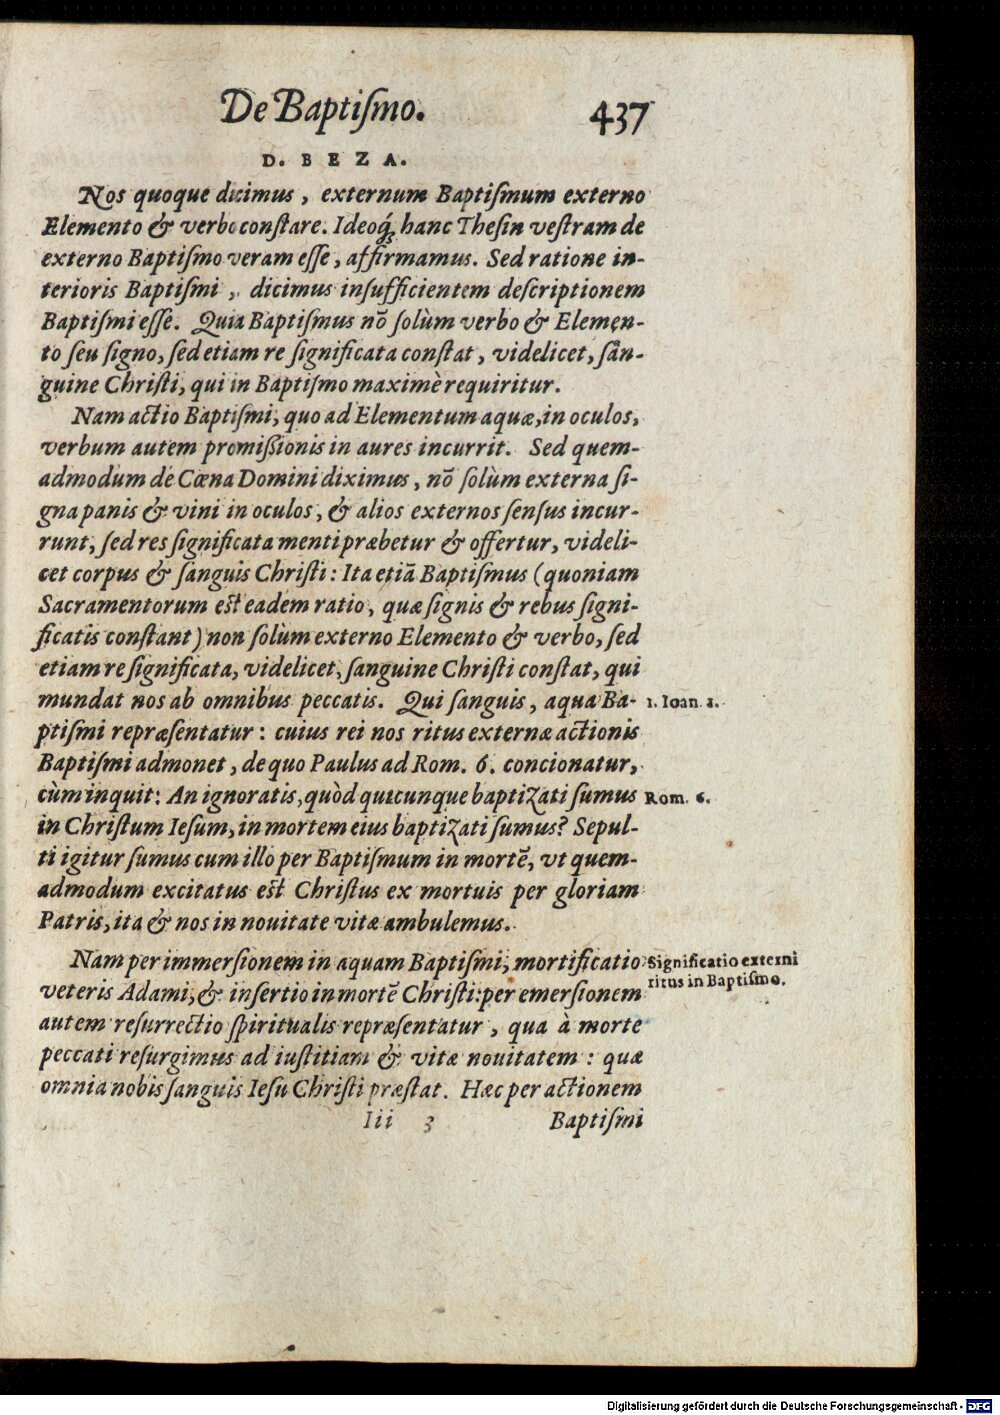 De Baptiſmo. 437
D. BEZA.
Nos quoque dicimus, externum Baptiſmum externo
Elemento & verbo conſtare. Ideoq́ꝫ hanc Theſin veſtram de
externo Baptiſmo veram eſſe, affirmamus. Sed ratione in-
terioris Baptiſmi, dicimus inſufficientem deſcriptionem
Baptiſmi eſſe. Quia Baptiſmus nõ ſolùm verbo & Elemen-
to ſeu ſigno, ſed etiam re ſignificata conſtat, videlicet, ſan-
guine Chriſti, qui in Baptiſmo maximè requiritur.
Nam actio Baptiſmi, quo ad Elementum aquæ, in oculos,
verbum autem promiſsionis in aures incurrit. Sed quem-
admodum de Cœna Domini diximus, nõ ſolùm externa ſi-
gna panis & vini in oculos, & alios externos ſenſus incur-
runt, ſed res ſignificata menti præbetur & offertur, videli-
cet corpus & ſanguis Chriſti: Ita etiã Baptiſmus (quoniam
Sacramentorum eſt eadem ratio, quæ ſignis & rebus ſigni-
ficatis conſtant) non ſolùm externo Elemento & verbo, ſed
etiam re ſignificata, videlicet, ſanguine Chriſti conſtat, qui
mundat nos ab omnibus peccatis. Qui ſanguis, aqua Ba- 1. Ioan. 1.
ptiſmi repræſentatur: cuius rei nos ritus externæ actionis
Baptiſmi admonet, de quo Paulus ad Rom. 6. concionatur,
cùm inquit: An ignoratis, quòd quicunque baptizati ſumus Rom. 6.
in Chriſtum Ieſum, in mortem eius baptizati ſumus? Sepul-
ti igitur ſumus cum illo per Baptiſmum in mortẽ, vt quem-
admodum excitatus eſt Chriſtus ex mortuis per gloriam
Patris, ita & nos in nouitate vitæ ambulemus.
Nam per immerſionem in aquam Baptiſmi, mortificatio Significatio externi
veteris Adami, & inſertio in mortẽ Chriſti: per emerſionem ritus in Baptiſmo.
autem reſurrectio ſpiritualis repræſentatur, qua à morte
peccati reſurgimus ad iuſtitiam & vitæ nouitatem: quæ
omnia nobis ſanguis Ieſu Chriſti præſtat. Hæc per actionem
Iii 3 Baptiſmi
Digitalisierung gefördert durch die Deutsche Forschungsgemeinschaft - DFG